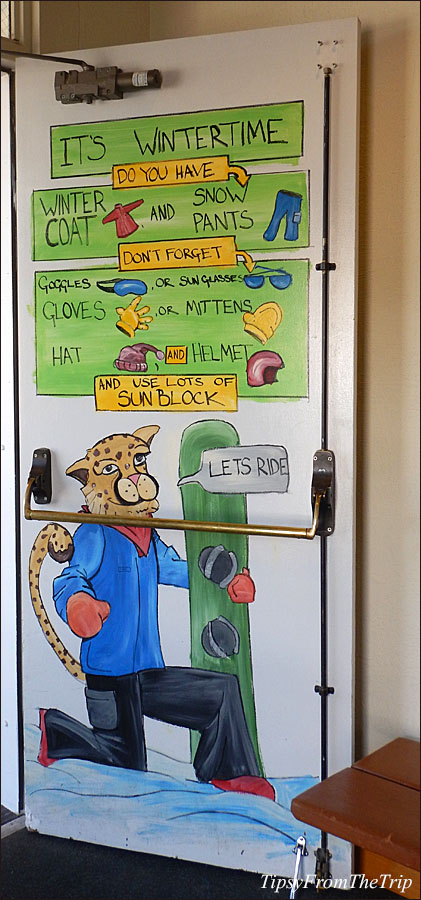 IT'S WINTERTIME
DO YOU HAVE
WINTER COAT AND SNOW PANTS
DON'T FORGET
GOGGLES OR SUNGLASSES
GLOVES OR MITTENS
HAT AND HELMET
AND USE LOTS OF
SUNBLOCK
LETS RIDE
TipsyFromTheTrip